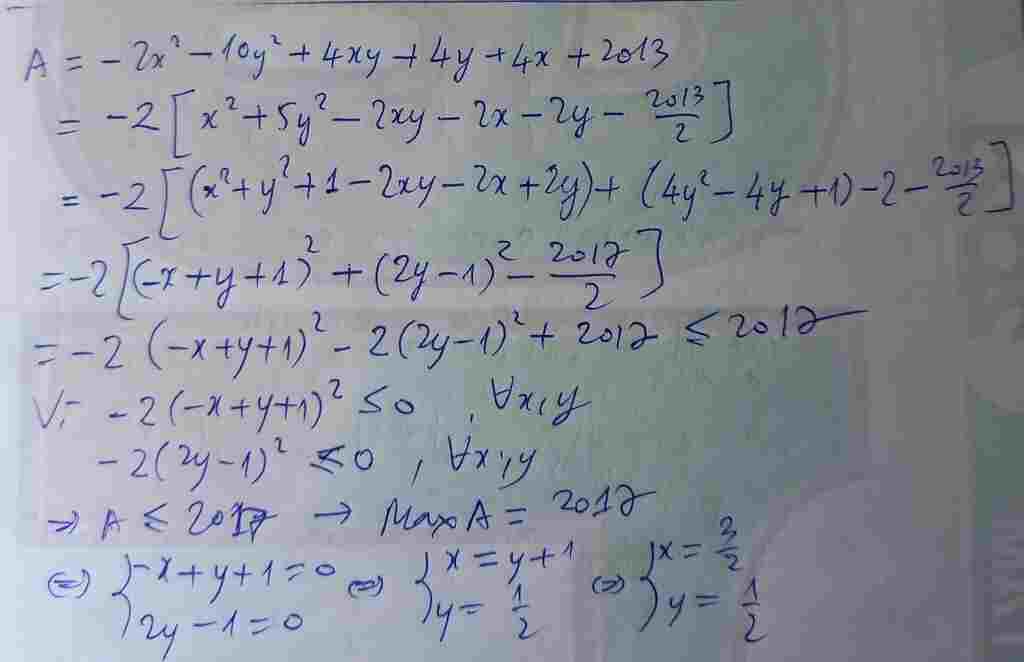 A = -2x² - 10y² + 4xy + 4y + 4x + 2013
= -2[x² + 5y² - 2xy - 2x - 2y - 2013/2]
= -2[(x² + y² + 1 - 2xy - 2x + 2y) + (4y² - 4y + 1) - 2 - 2013/2]
= -2[(-x + y + 1)² + (2y - 1)² - 2017/2]
= -2(-x + y + 1)² - 2(2y - 1)² + 2017 ≤ 2017
Vì -2(-x + y + 1)² ≤ 0, ∀x, y
-2(2y - 1)² ≤ 0, ∀x, y
→ A ≤ 2017 → Max A = 2017
(=) { -x + y + 1 = 0 (=) { x = y + 1 (=) { x = 3/2
2y - 1 = 0 y = 1/2 y = 1/2